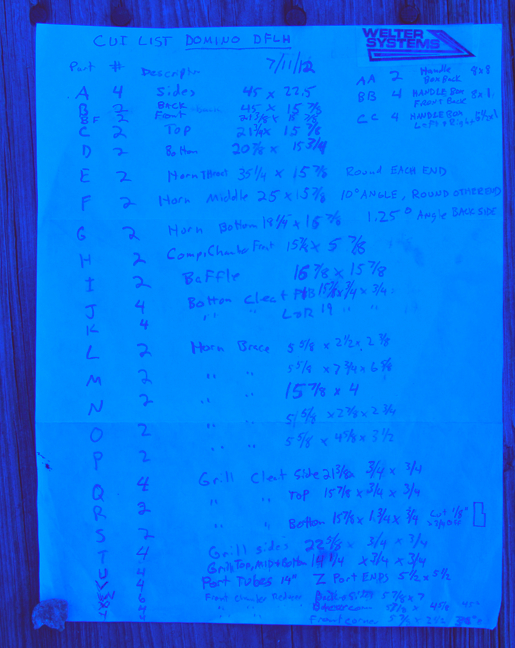 CUT LIST DOMINO DFLH
WELTER SYSTEMS
7/11/12
Part # Descripton
AA 2 Handle Box Back 8x8
BB 4 HANDLE BOX FRONT BACK 8x
CC 4 HANDLE BOX Left + Right
A 4 Sides 45 x 22.5
B 2 BACK 45 x 15 7/8
BF 2 Front
C 2 TOP 21 3/4 x 15 7/8
D 2 Bottom 20 7/8 x 15 3/4
E 2 Horn Throat 35 1/4 x 15 7/8 Round EACH END
F 2 Horn Middle 25 x 15 7/8 10° ANGLE, ROUND OTHER END
G 2 Horn Bottom 19 1/4 x 15 7/8 1.25° Angle BACK SIDE
H 2 Comp. Chamber Front 15 7/8 x 5 7/8
I 2 Baffle 16 7/8 x 15 7/8
J 4 Bottom Cleat F+B 15 7/8 x 3/4 x 3/4
K 4 " " L+R 19 " "
L 2 Horn Brace 5 5/8 x 2 1/2 x 2 3/8
M 2 " " 5 5/8 x 7 3/4 x 6 5/8
N 2 " " 15 7/8 x 4
O 2 " " 5 5/8 x 2 3/8 x 2 3/4
P 2 " " 5 5/8 x 4 5/8 x 3 1/2
Q 4 Grill Cleat Side 21 3/8 x 3/4 x 3/4
R 2 " " Top 15 7/8 x 3/4 x 3/4
S 2 " " Bottom 15 7/8 x 1 3/4 x 3/4 Cut 1/8"
T 4 Grill sides 22 5/8 x 3/4 x 3/4
U 4 Grill Top, MID + Bottom 14 1/4 x 3/4 x 3/4
V 4 Port TUBES 14" 2 Port ENDS 5 1/2 x 5 1/2
W 6 Front Chamber Reducer Sides 5 7/8 x 7
X 4 corner
Y 4 Front corner